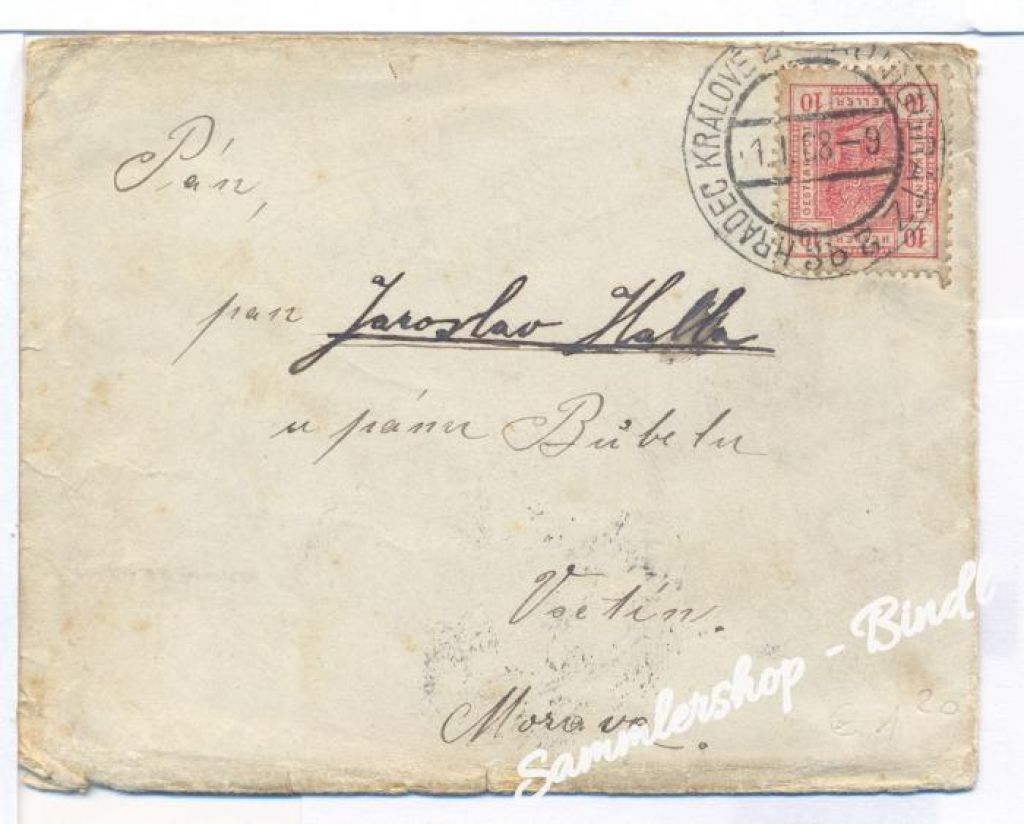 HRADEC KRÁLOVÉ 2
1. 08-9
10 HELLER 10
10 10
Pán,
pan Jaroslav Halla
u pánu Bůbelu
Vsetín.
Morava.
Sammlershop - Bindl
€ 1 20